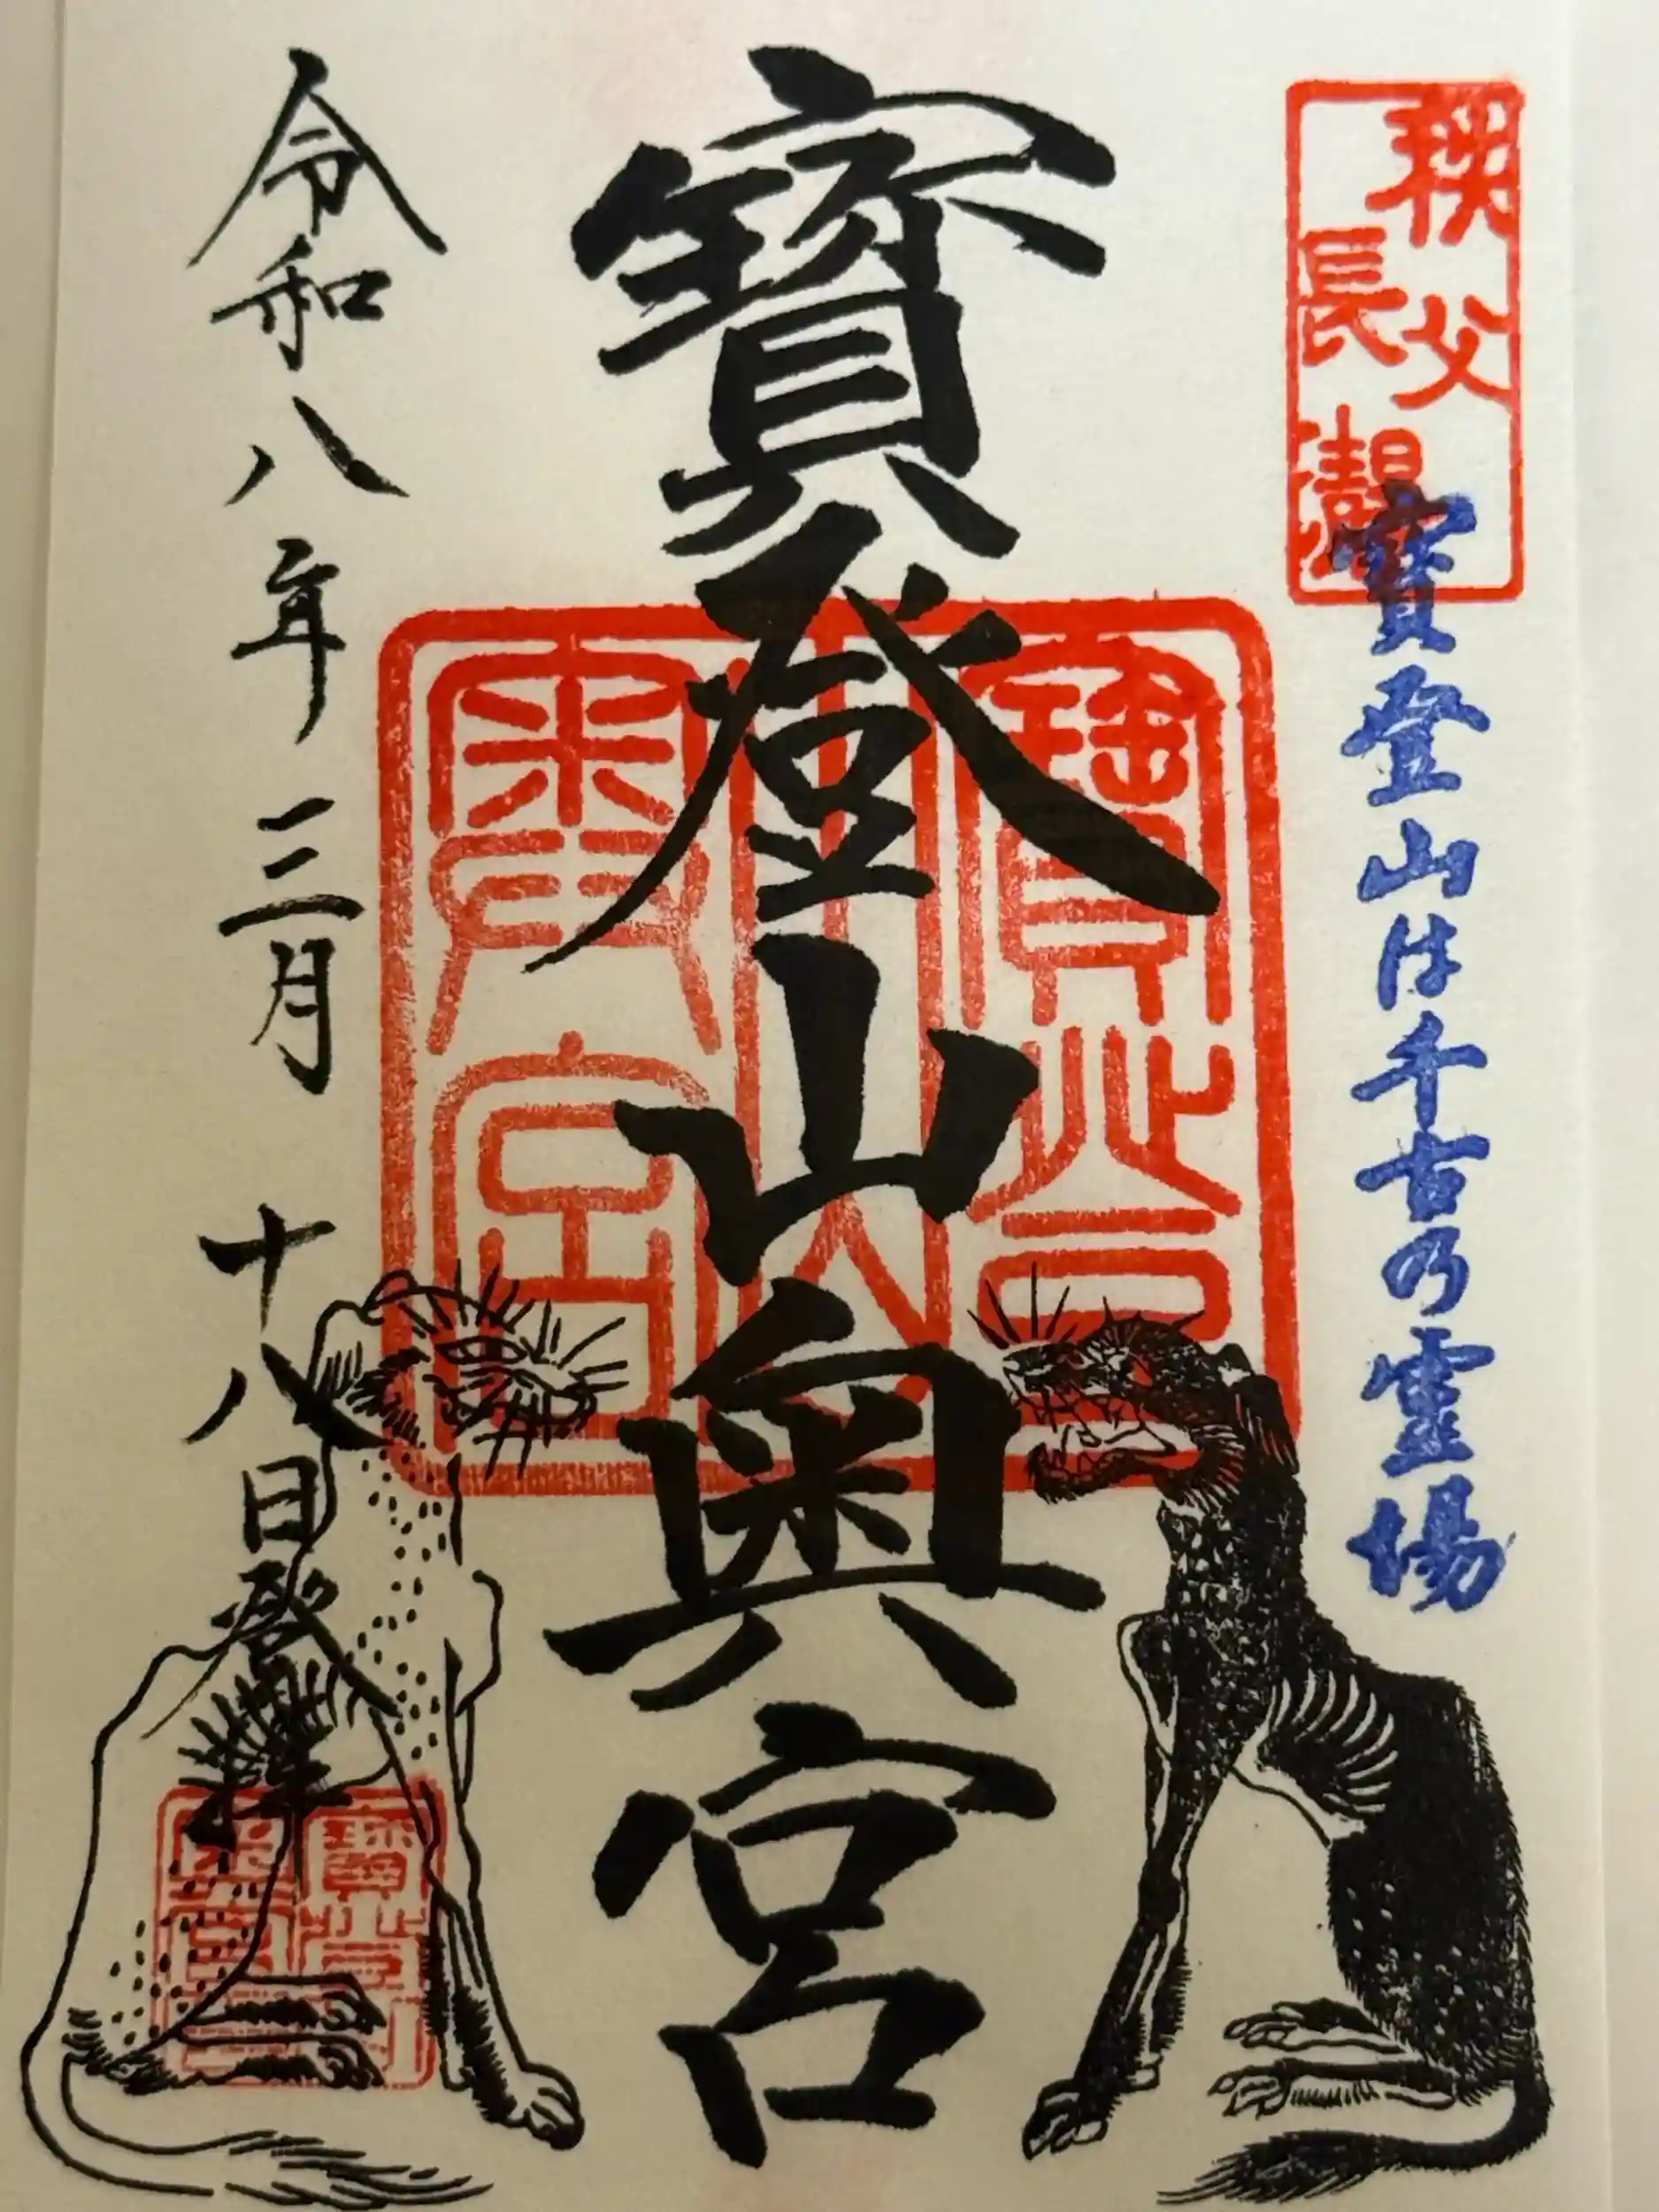 秩父
長瀞
寶登山は千古乃霊場
寶登山奥宮
寶登
山
奥宮
令和八年三月十八日登拝